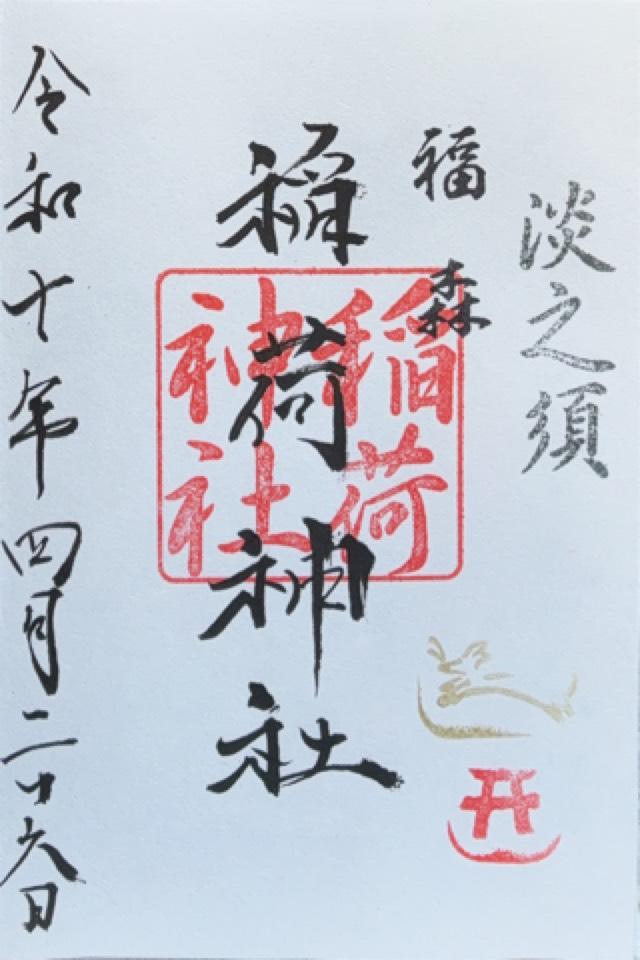 淡之須
福森
稲荷神社
稲荷
神社
令和十年四月二十六日